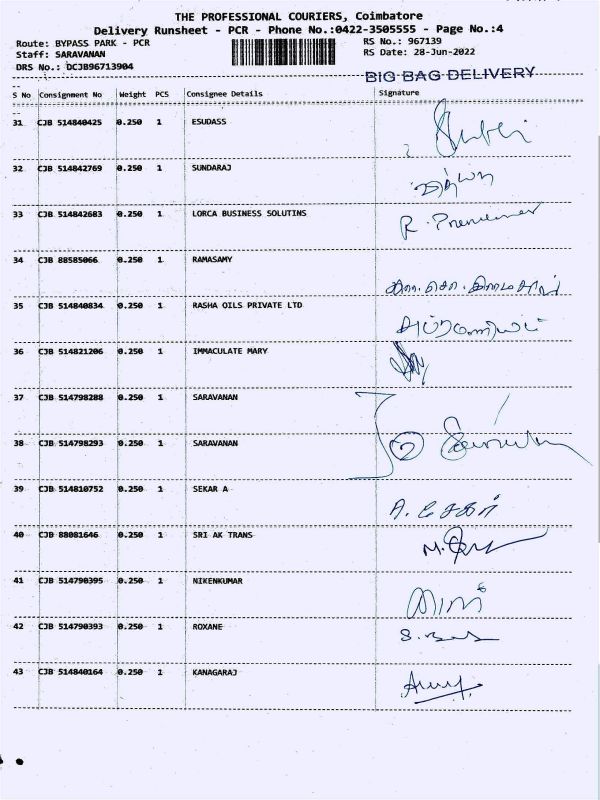 THE PROFESSIONAL COURIERS, Coimbatore
Delivery Runsheet - PCR - Phone No.:0422-3505555 - Page No.:4
Route: BYPASS PARK - PCR RS No.: 967139
Staff: SARAVANAN RS Date: 28-Jun-2022
DRS No.: DCJB96713904
BIG BAG DELIVERY
S No Consignment No Weight PCS Consignee Details Signature
31 CJB 514840425 0.250 1 ESUDASS
32 CJB 514842769 0.250 1 SUNDARAJ
33 CJB 514842683 0.250 1 LORCA BUSINESS SOLUTINS
34 CJB 88585066 0.250 1 RAMASAMY
35 CJB 514840834 0.250 1 RASHA OILS PRIVATE LTD
36 CJB 514821206 0.250 1 IMMACULATE MARY
37 CJB 514798288 0.250 1 SARAVANAN
38 CJB 514798293 0.250 1 SARAVANAN
39 CJB 514810752 0.250 1 SEKAR A A. சேகர்
40 CJB 88081646 0.250 1 SRI AK TRANS
41 CJB 514790395 0.250 1 NIKENKUMAR
42 CJB 514790393 0.250 1 ROXANE
43 CJB 514840164 0.250 1 KANAGARAJ